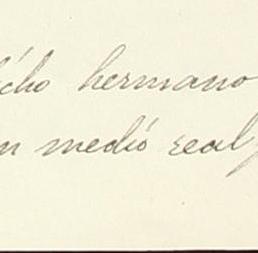 dicho hermano
un medio real